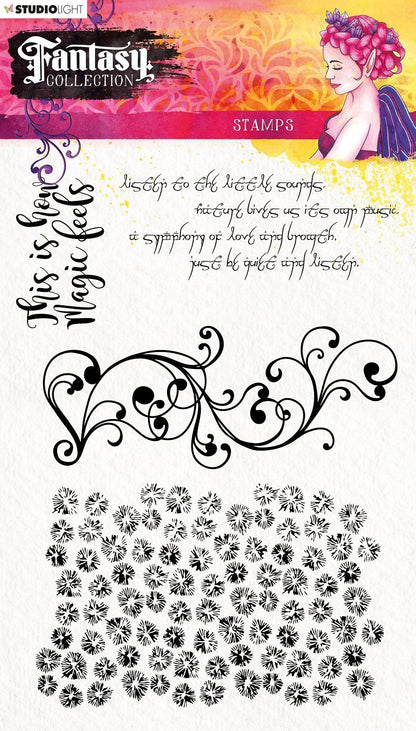 STUDIOLIGHT
Fantasy
COLLECTION
STAMPS
This is how
Magic feels
listen to the little sounds.
nature gives us its own music.
a symphony of love and growth.
just be quite and listen.